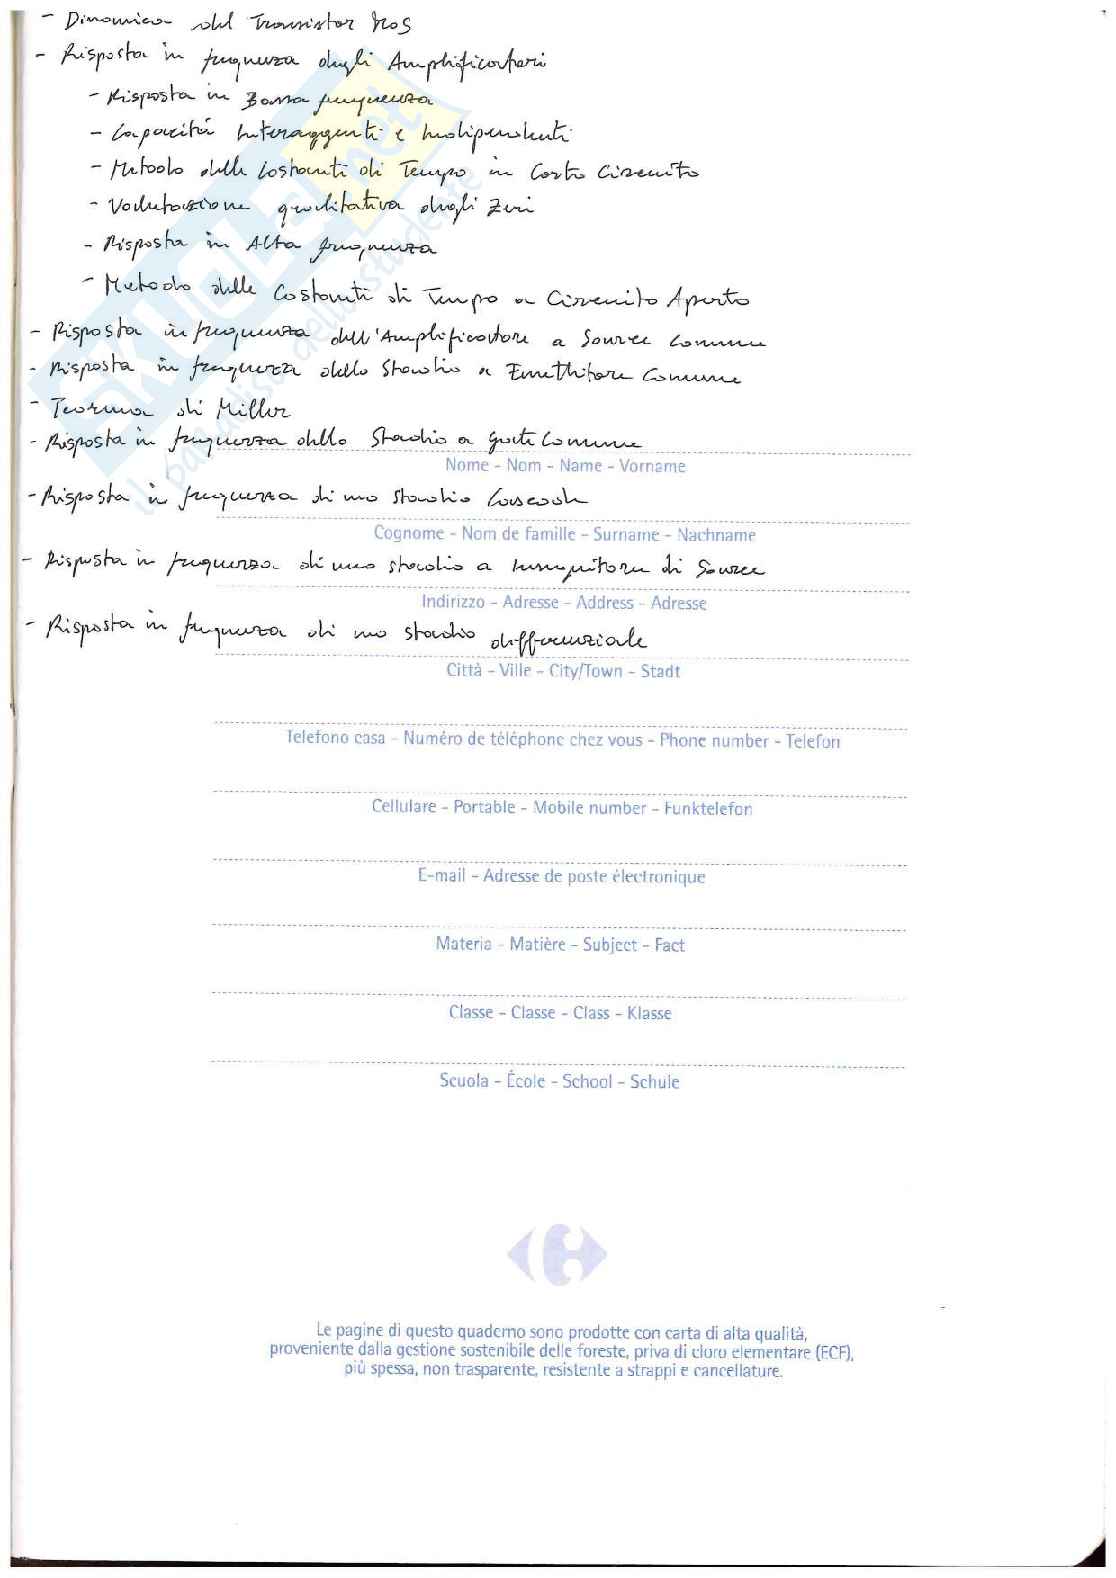 - Dinamica del Transistor MOS
- Risposta in frequenza degli Amplificatori
- Risposta in Bassa frequenza
- Capacità Interaggenti e Indipendenti
- Metodo delle Costanti di Tempo in Corto Circuito
- Valutazione qualitativa degli Zeri
- Risposta in Alta frequenza
- Metodo delle Costanti di Tempo a Circuito Aperto
- Risposta in frequenza dell'Amplificatore a Source Comune
- Risposta in frequenza dello Stadio a Emettitore Comune
- Teorema di Miller
- Risposta in frequenza dello Stadio a gate Comune
Nome - Nom - Name - Vorname
- Risposta in frequenza di uno stadio Cascode
Cognome - Nom de famille - Surname - Nachname
- Risposta in frequenza di uno stadio a Inseguitore di Source
Indirizzo - Adresse - Address - Adresse
- Risposta in frequenza di uno stadio differenziale
Città - Ville - City/Town - Stadt
Telefono casa - Numéro de téléphone chez vous - Phone number - Telefon
Cellulare - Portable - Mobile number - Funktelefon
E-mail - Adresse de poste électronique
Materia - Matière - Subject - Fact
Classe - Classe - Class - Klasse
Scuola - École - School - Schule
Le pagine di questo quaderno sono prodotte con carta di alta qualità,
proveniente dalla gestione sostenibile delle foreste, priva di cloro elementare (ECF),
più spessa, non trasparente, resistente a strappi e cancellature.
SKUOLA.net
il paradiso dello studente